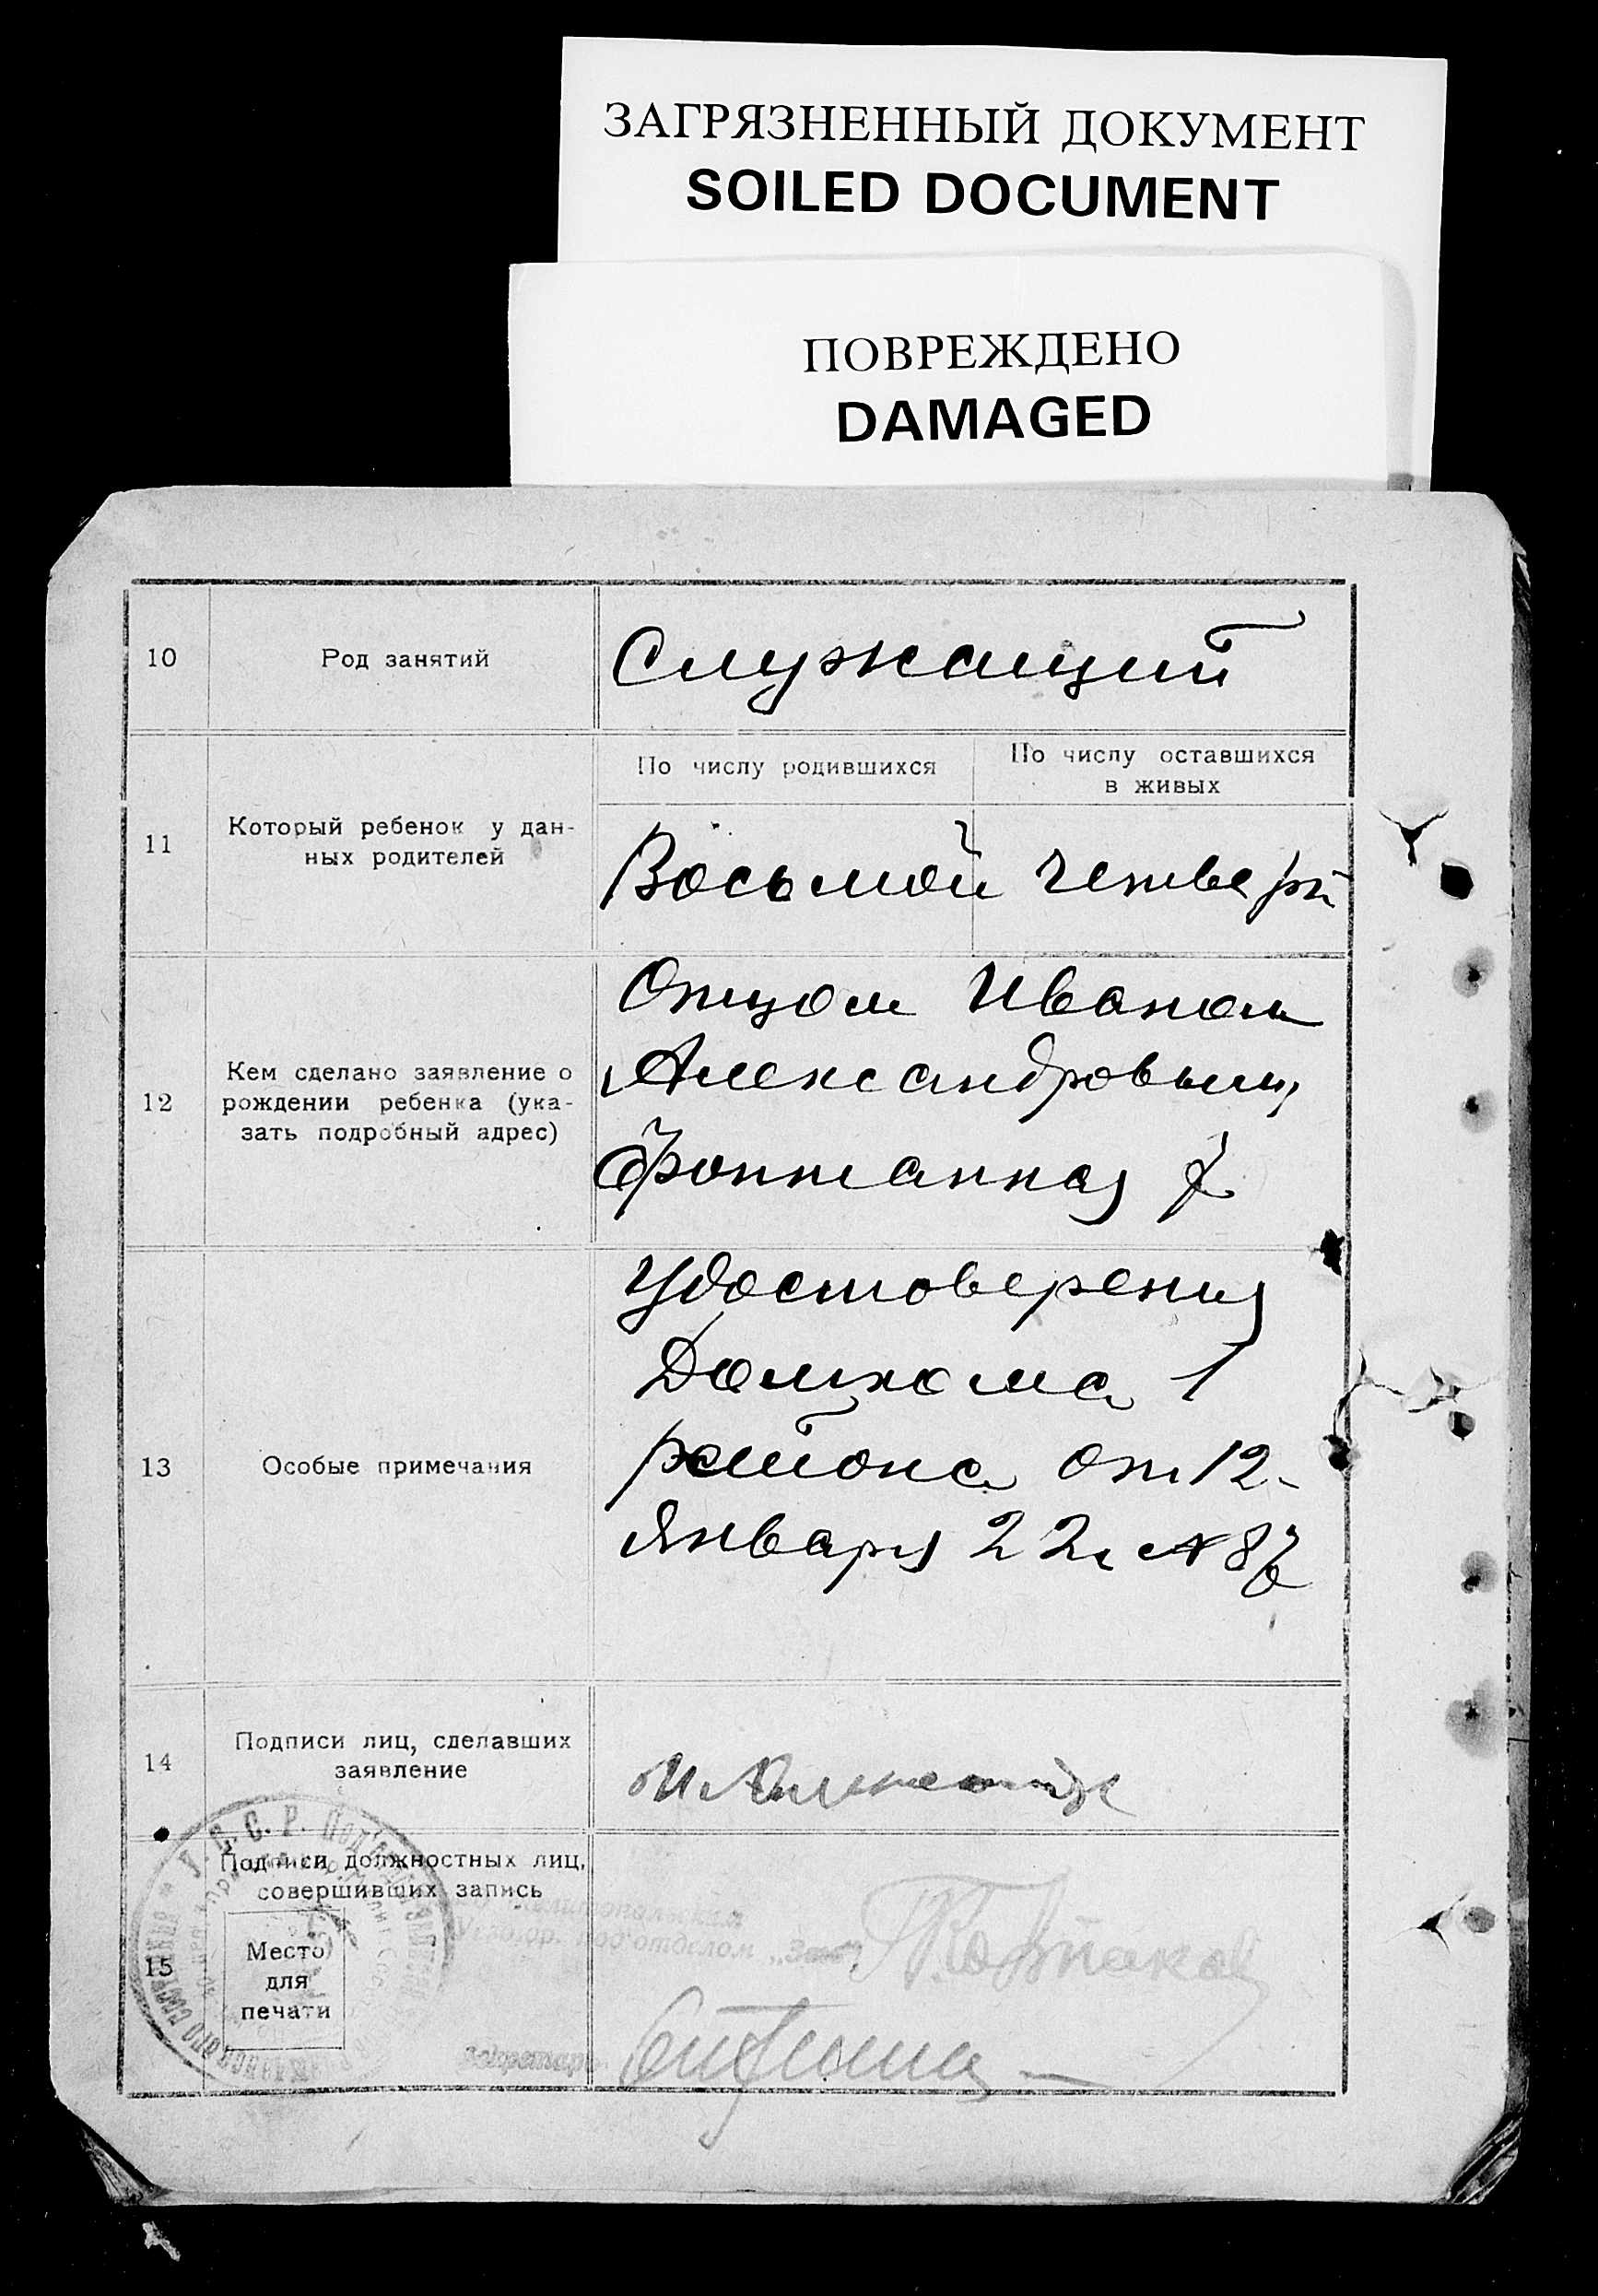 ЗАГРЯЗНЕННЫЙ ДОКУМЕНТ
SOILED DOCUMENT
ПОВРЕЖДЕНО
DAMAGED
10
Род занятий
Служащий
11
Который ребенок у дан-
ных родителей
По числу родившихся
По числу оставшихся
в живых
Восьмой
Четверт
12
Кем сделано заявление о
рождении ребенка (ука-
зать подробный адрес)
Отцом Иваном
Александровым
Фонтанная 7
13
Особые примечания
Удостоверения
Домкома 1
района от 12
Января 22г № 87
14
Подписи лиц, сделавших
заявление
15
Подписи должностных лиц,
совершивших запись
Место
для
печати
У. С. С. Р.
под'отделом
Секретарь